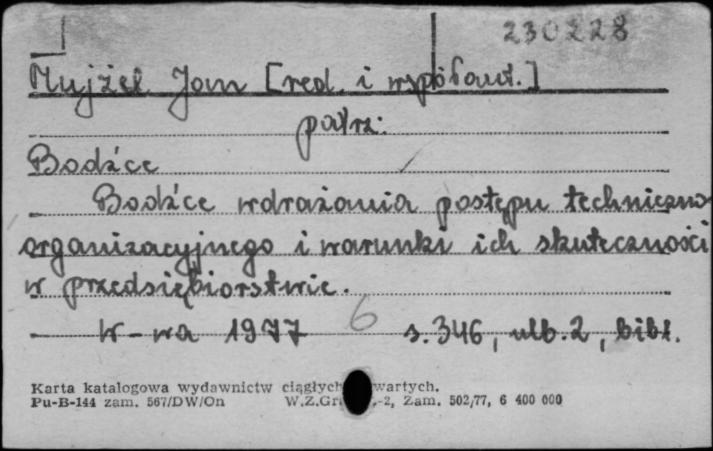 230228
Mujżel Jan [red. i współaut.]
patrz:
Bodźce
Bodźce wdrażania postępu techniczno
organizacyjnego i warunki ich skuteczności
w przedsiębiorstwie.
W-wa 1977 6 s. 346, ulb. 2, bibl.
Karta katalogowa wydawnictw ciągłych wartych.
Pu-B-144 zam. 567/DW/On W.Z.Gr -2, Zam. 502/77, 6 400 000